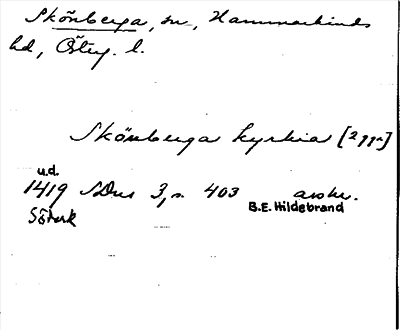 Skönberga, sn, Hammarkinds
hd, Östg. l.
Skönberga kyrkia [2 ggr]
u.d.
1419 SDns 3, s. 403 avskr.
Söderk B.E. Hildebrand